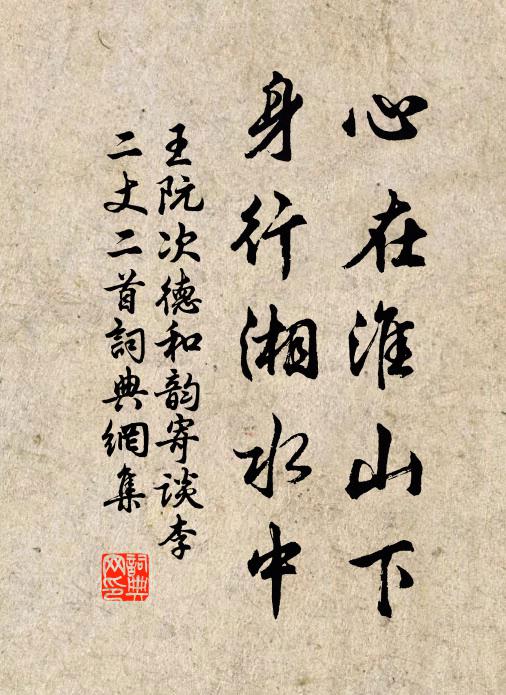 心在淮山下
身行湘水中
王阮次德和韵寄谈李
二丈二首詞典網集
詞典網印